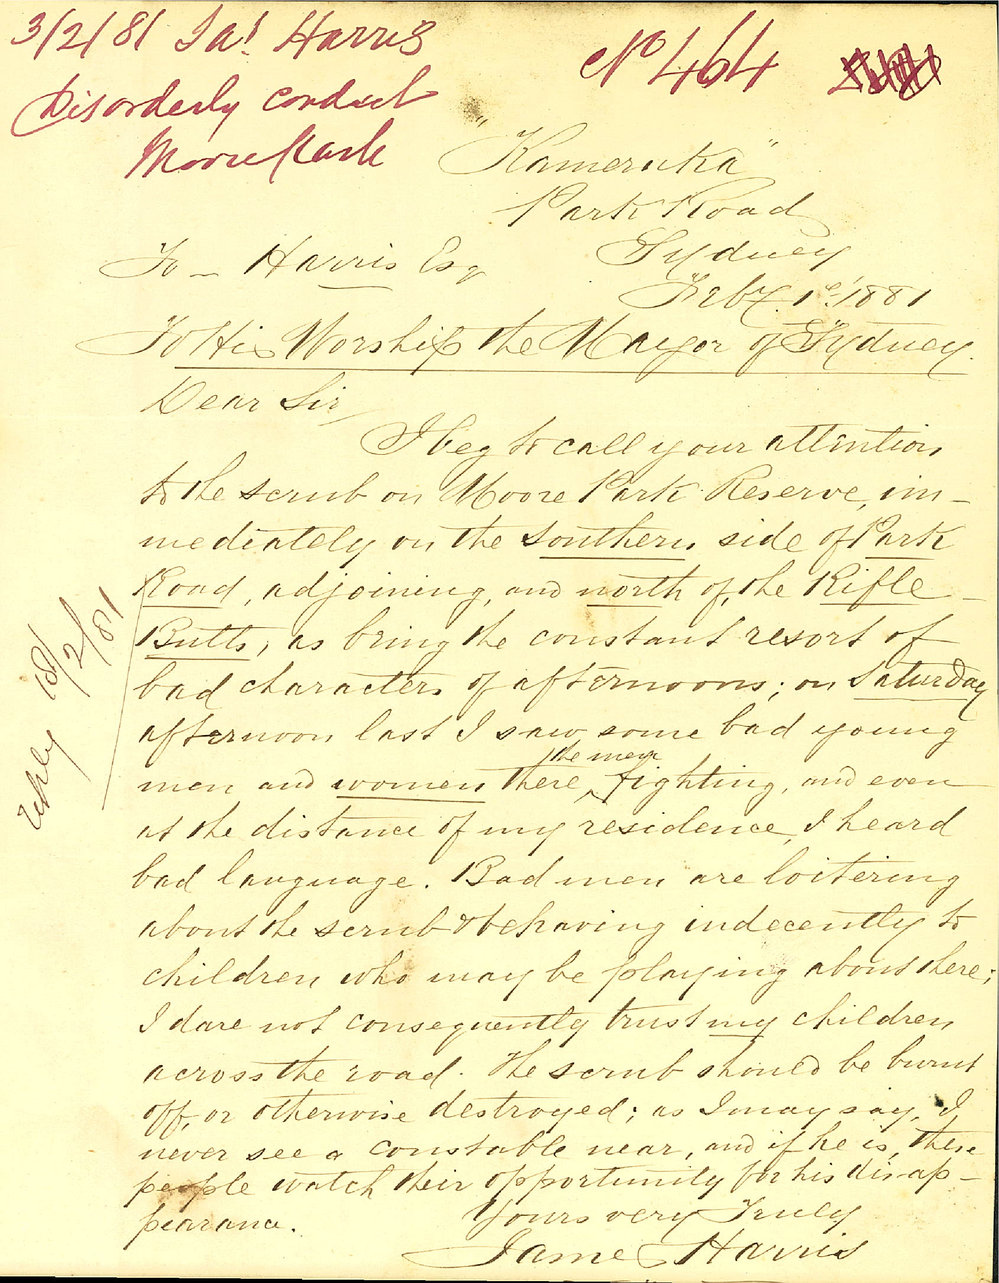 3/2/81 Jas Harris
Disorderly conduct
Moore Park
No 464
"Kameruka"
Park Road
Sydney
Feby. 1st 1881
To - Harris Esq
To His Worship the Mayor of Sydney.
Dear Sir
I beg to call your attention
to the scrub on Moore Park Reserve, im-
mediately on the southern side of Park
Road, adjoining, and north of, the Rifle-
Butts, as being the constant resort of
bad characters of afternoons; on Saturday
afternoon last I saw some bad young
men and women there, the men fighting, and even
at the distance of my residence, I heard
bad language. Bad men are loitering
about the scrub & behaving indecently to
children who may be playing about there;
I dare not consequently trust my children
across the road. The scrub should be burnt
off, or otherwise destroyed; as I may say, I
never see a constable near, and if he is, these
people watch their opportunity for his disap-
pearance.
Yours very Truly
James Harris
2/81